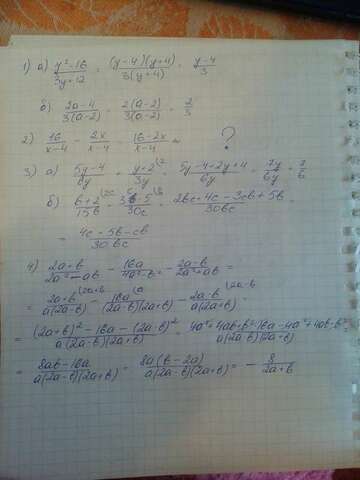 1) а) y²-16 / 3y+12 = (y-4)(y+4) / 3(y+4) = y-4 / 3
б) 2a-4 / 3(a-2) = 2(a-2) / 3(a-2) = 2 / 3
2) 16 / x-4 - 2x / x-4 = 16-2x / x-4 = ?
3) а) 5y-4 / 6y + y+2 / 3y = 5y-4+2y+4 / 6y = 7y / 6y = 7 / 6
б) b+2 / 15b - 3c-5 / 30c = 2bc+4c-3cb+5b / 30bc =
= 4c-5b-cb / 30bc
4) 2a+b / 2a²-ab - 16a / 4a²-b² - 2a-b / 2a²+ab =
= 2a+b / a(2a-b) - 16a / (2a-b)(2a+b) - 2a-b / a(2a+b) =
= (2a+b)²-16a-(2a-b)² / a(2a-b)(2a+b) = 4a²+4ab+b²-16a-4a²+4ab-b² / a(2a-b)(2a+b) =
= 8ab-16a / a(2a-b)(2a+b) = 8a(b-2a) / a(2a-b)(2a+b) = - 8 / 2a+b